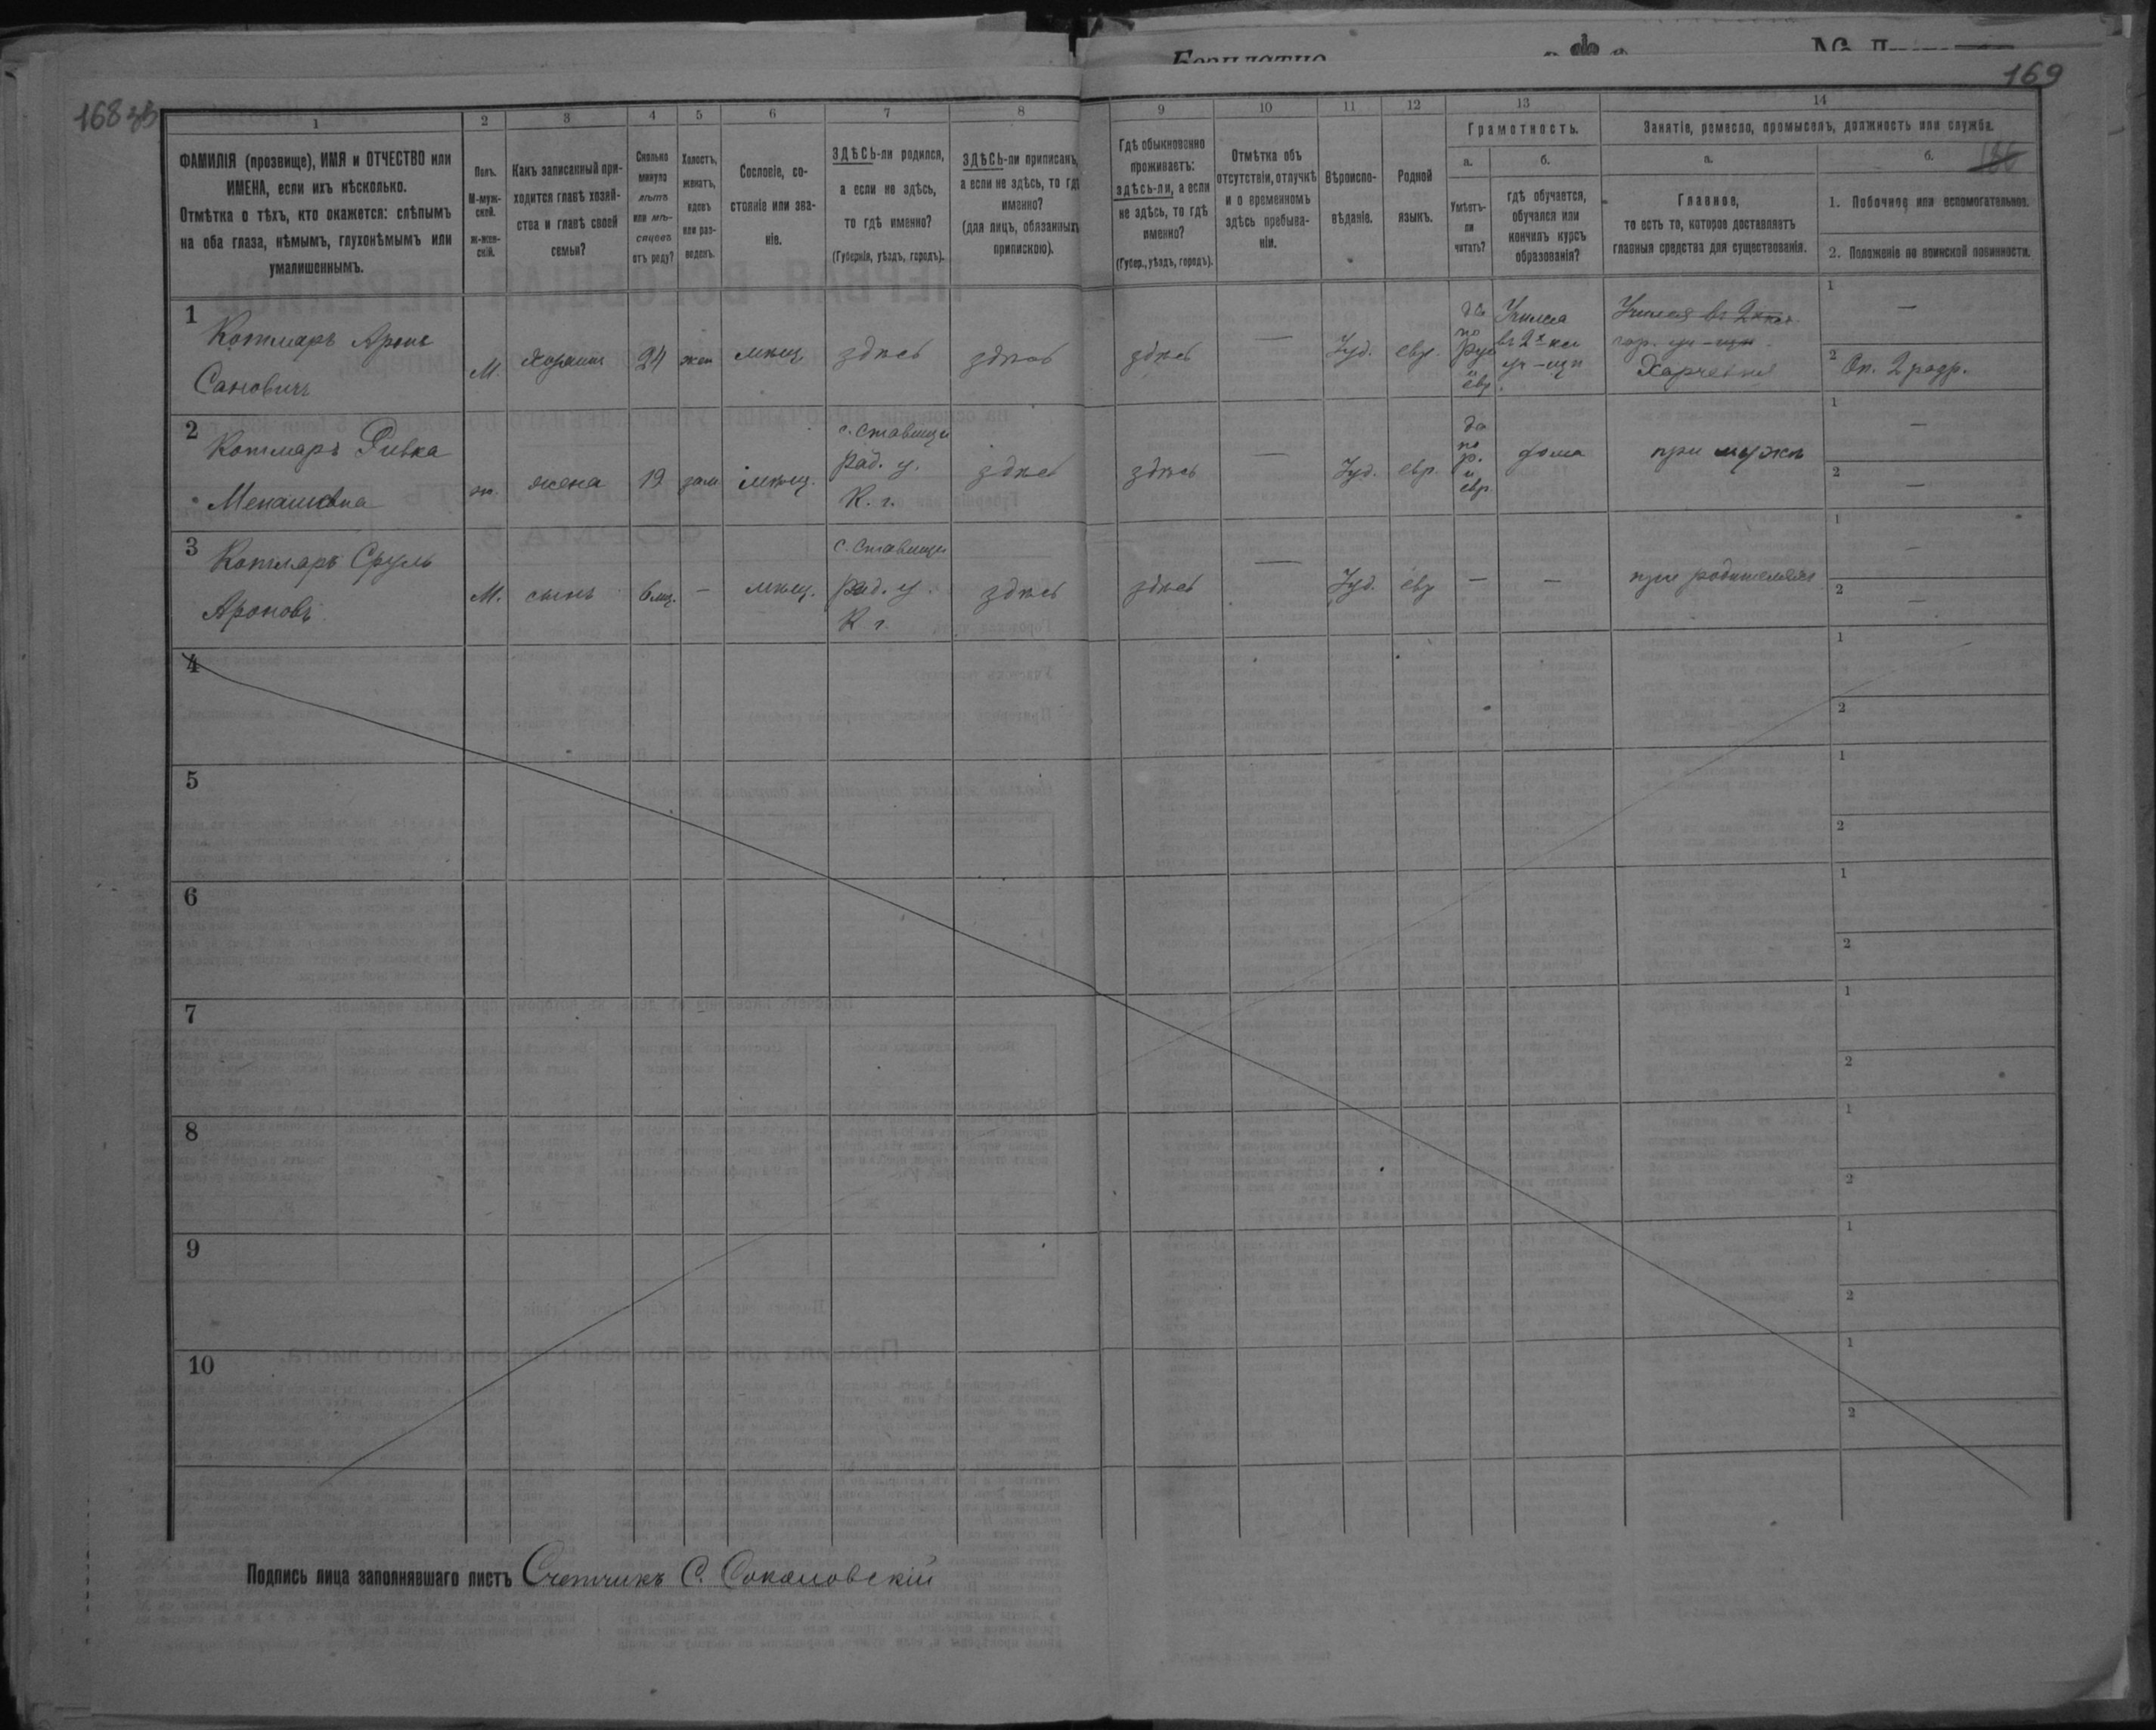 168 об
169
1
2
3
4
5
6
7
8
9
10
11
12
13
14
ФАМИЛІЯ (прозвище), ИМЯ и ОТЧЕСТВО или
ИМЕНА, если ихъ нѣсколько.
Отмѣтка о тѣхъ, кто окажется: слѣпымъ
на оба глаза, нѣмымъ, глухонѣмымъ или
умалишеннымъ.
Полъ.
М-муж-
ской.
Ж-жен-
скій.
Какъ записанный при-
ходится главѣ хозяй-
ства и главѣ своей
семьи?
Сколько
минуло
лѣтъ
или мѣ-
сяцевъ
отъ роду?
Холостъ,
женатъ,
вдовъ
или раз-
веденъ.
Сословіе, со-
стояніе или зва-
ніе.
ЗДѢСЬ-ли родился,
а если не здѣсь,
то гдѣ именно?
(Губернія, уѣздъ, городъ).
ЗДѢСЬ-ли приписанъ,
а если не здѣсь, то гдѣ
именно?
(для лицъ, обязанныхъ
припискою).
Гдѣ обыкновенно
проживаетъ:
здѣсь-ли, а если
не здѣсь, то гдѣ
именно?
(Губер., уѣздъ, городъ).
Отмѣтка объ
отсутствіи, отлучкѣ
и о временномъ
здѣсь пребыва-
ніи.
Вѣроиспо-
вѣданіе.
Родной
языкъ.
Грамотность.
а.
Умѣетъ-
ли
читать?
б.
гдѣ обучается,
обучался или
кончилъ курсъ
образованія?
Занятіе, ремесло, промыселъ, должность или служба.
а.
Главное,
то есть то, которое доставляетъ
главныя средства для существованія.
б.
1. Побочное или вспомогательное.
2. Положеніе по воинской повинности.
1
Котляръ Аронъ
Санович
М.
хозяинъ
24
жен
мѣщ.
здѣсь
здѣсь
здѣсь
—
Іуд.
евр.
да
по
рус
и
евр.
въ 2х кл
уч-щѣ
гор. уч-щѣ
Харчевня
1
—
2
Оп. 2 разр.
2
Котляръ Ривка
Менашовна
ж.
жена
19
зам
мѣщ.
с. Ставищи
Рад. у.
К. г.
здѣсь
здѣсь
—
Іуд.
евр.
да
по
р.
и
евр.
дома
при мужѣ
1
—
2
—
3
Котляръ Сруль
Ароновъ
М.
сынъ
6 мѣ.
-
мѣщ.
с. Ставищи
Рад. у.
К г
здѣсь
здѣсь
—
Іуд.
евр
—
—
при родителяхъ
1
—
2
—
4
1
2
5
1
2
6
1
2
7
1
2
8
1
2
9
1
2
10
1
2
Подпись лица заполнявшаго листъ Счетчикъ С. Сокаловскій